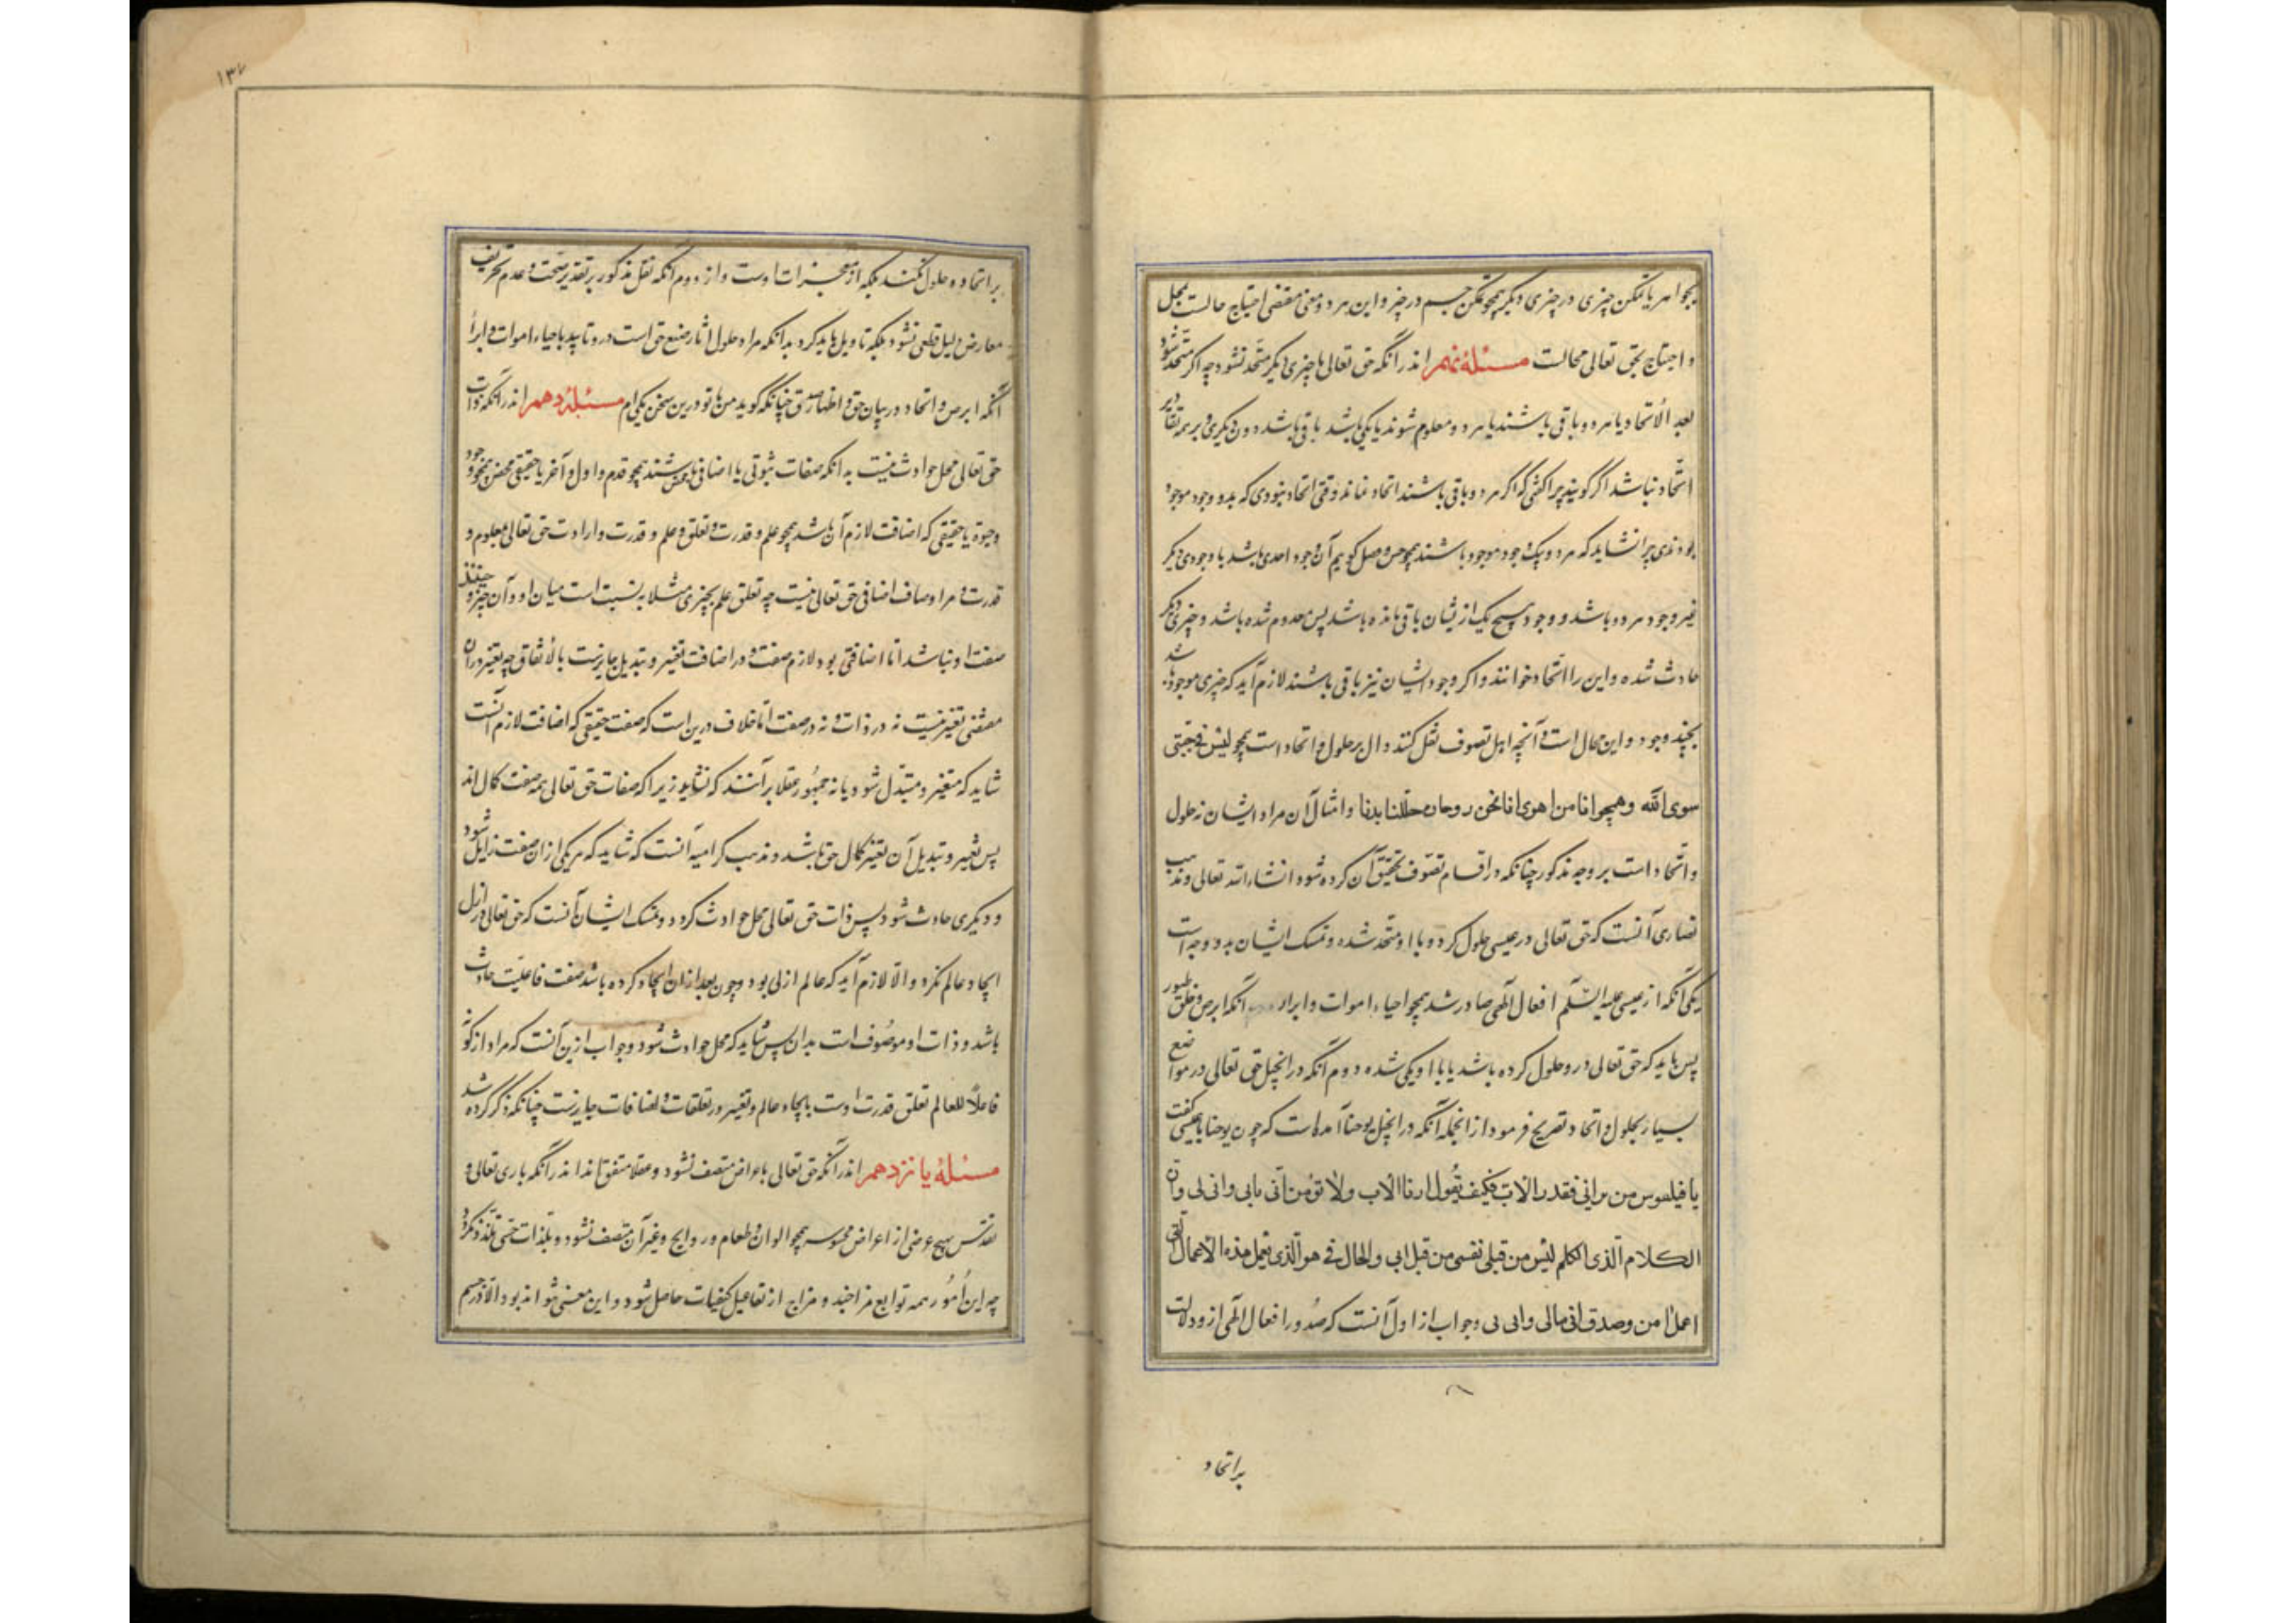 بجواهر یا تمکن چیزی در چیزی دیگر همچو تمکن جسم در حیز و این هر دو معنی مقتضی احتیاج حالست بمحل
و احتیاج بحق تعالی محالست مسئلهٔ نهم اندر آنکه حق تعالی با چیزی دیگر متحد نشود چه اگر متحد شود
بعد الاتحاد یا هر دو باقی باشند یا هر دو معدوم شوند یا یکی باشد باقی باشد دون دیگری و بر همه تقادیر
اتحاد نباشد اگر گویند چرا گفتی که اگر هر دو باقی باشند اتحاد نماند وقتی اتحاد نبودی که بدو وجود موجود
بودندی چرا نشاید که هر دو بیک وجود موجود باشند همچو جنس و فصل گوییم آن وجود احدی باشد یا وجودی دیگر
غیر وجود هر دو باشد و وجود هیچ یک ازیشان باقی نمانده باشد پس معدوم شده باشد و چیزی دیگر
حادث شده و این را اتحاد نخوانند و اگر وجود ایشان نیز باقی باشند لازم آید که چیزی موجود باشد
بچند وجود و این محال است و آنچه اهل تصوف نقل کنند دال بر حلول و اتحاد است همچو لیس فی جبتی
سوی الله و همچو انا من اهوی انا نحن روحان حللنا بدنا و امثال آن مراد ایشان نه حلول
و اتحاد است بر وجه مذکور چنانکه در اقسام تصوف تحقیق آن کرده شود انشاء الله تعالی و مذهب
نصاری آنست که حق تعالی در عیسی حلول کرد و با او متحد شده و تمسک ایشان بدو وجه است
یکی آنکه از عیسی علیه السلم افعال آلهی صادر شد همچو احیاء اموات و ابراء اکمه و ابرص و خلق طیور
پس باید که حق تعالی درو حلول کرده باشد یا با او یکی شده دوم آنکه در انجیل حق تعالی در مواضع
بسیار بحلول و اتحاد تصریح فرمود از انجمله آنکه در انجیل یوحنا آمده است که چون یوحنا با عیسی گفت
یا فیلبوس من یرانی فقد رای الاب فکیف تقول ارنا الاب ولا تؤمن آنی بابی وابی بی وان
الکلام الذی اتکلم لیس من قبل نفسی من قبل ابی والحال فی هو الذی یعمل هذه الاعمال التی
اعمل امن وصدق انی بابی وابی بی و جواب از اول آنست که صدور افعال آلهی ازو دلالت
بر اتحاد
۱۳۶
بر اتحاد و حلول نکند بلکه از معجزات اوست و از دوم آنکه نقل مذکور بر تقدیر صحت و عدم تحریف
معارض دلیل قطعی نشود بلکه تاویل باید کرد بدانکه مراد حلول آثار صنع حق است درو تایید باحیاء اموات و ابراء
اکمه و ابرص و اتحاد در بیان حق و اظهار صدق چنانکه گوید من با تو درین سخن یکی‌ام مسئلهٔ دهم اندر آنکه ذات
حق تعالی محل حوادث نیست بدانکه صفات ثبوتی یا اضافی محض باشند همچو قدم و اول و آخر یا حقیقی محض همچو وجود
وحیوة یا حقیقی که اضافت لازم آن باشد همچو علم و قدرت و تعلق و علم و قدرت و ارادت حق تعالی بمعلوم و
قدرت و مراد صاف اضافی حق تعالی نیست چه تعلق علم بچیزی مثلا نسبت است میان او و آن چیز و حینئذ
صفت او نباشد اما اضافتی بود لازم صفت و در اضافت تغییر و تبدیل جایزست بالاتفاق چه تغییر در آن
مقتضی تغییر نیست نه در ذات و نه در صفت اما خلاف درین است که صفت حقیقی که اضافت لازم آنست
شاید که متغیر و متبدل شود یا نه جمهور عقلا برآنند که نشاید زیرا که صفات حق تعالی همه صفت کمال اند
پس تغییر و تبدیل آن تغییر کمال حق باشد و مذهب کرامیه آنست که شاید که هر یکی از ان صفت زایل شود
و دیگری حادث شود پس ذات حق تعالی محل حوادث گردد و تمسک ایشان آنست که حق تعالی در ازل
ایجاد عالم نکرد و الا لازم آید که عالم ازلی بود و چون بعد از ان ایجاد کرده باشد صفت فاعلیت حادث
باشد و ذات او موصوف است بدان پس شاید که محل حوادث شود و جواب ازین آنست که مراد از کونه
فاعلاً للعالم تعلق قدرت اوست بایجاد عالم و تغییر در تعلقات و اضافات جایزست چنانکه ذکر کرده شد
مسئلهٔ یانزدهم اندر آنکه حق تعالی باعراض متصف نشود و عقلا متفق‌اند اندر آنکه باری تعالی و
تقدس بهیچ عرضی از اعراض محسوسه همچو الوان و طعام و روایح و غیر آن متصف نشود و بلذات حسی متلذذ نگردد
چه این امور همه توابع مزاجند و مزاج از تفاعیل کیفیات حاصل شود و این معنی نتواند بود الا در جسم